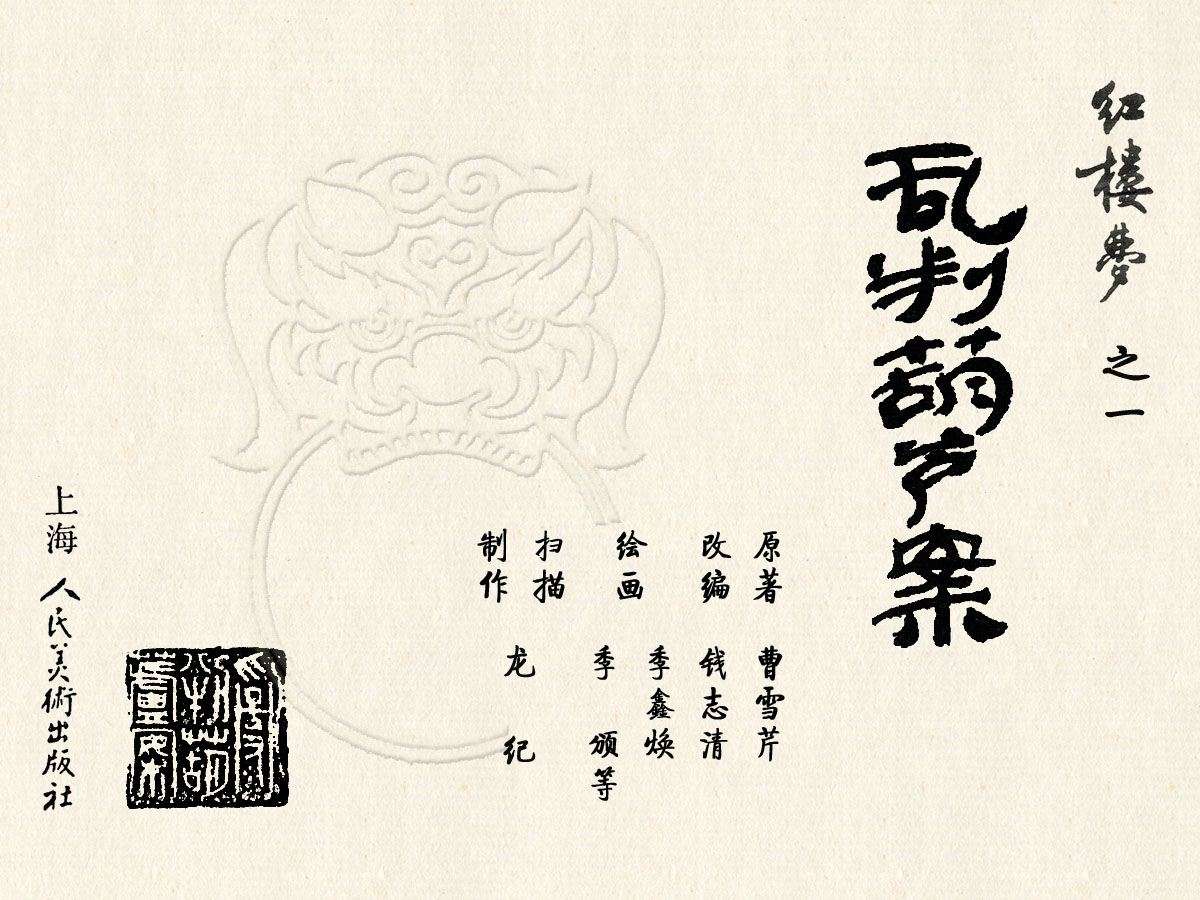 红楼梦 之一
乱判葫芦案
原著 曹雪芹
改编 钱志清
绘画 季鑫焕
季颁等
扫描
制作 龙纪
上海人民美術出版社